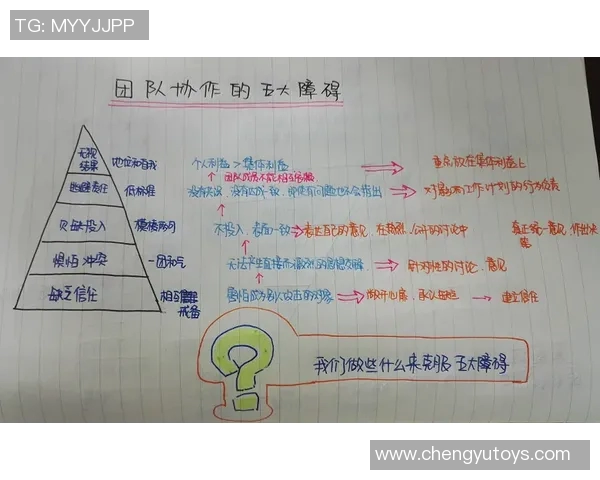 TG: MYYJJPP
团队协作的五大障碍
无视结果 地位和自我 个人利益 > 集体利益 重点放在集体利益上
团队成员不能相互
逃避责任 低标准 没有 没有 即使有问题也不会指出 对影响工作计划的行为负责
欠缺投入 模棱两可 不投入,表面一致 表达自己的意见,在 公开的讨论中 真正统一意见,作出决定
惧怕冲突 一团和气 无法产生直接而激烈的思想交锋 针对性的讨论、意见
缺乏信任 相互 戒备 害怕成为别人攻击的对象 敞开心扉,承认 建立信任
?
我们做些什么来克服五大障碍
www.chengyutoys.com